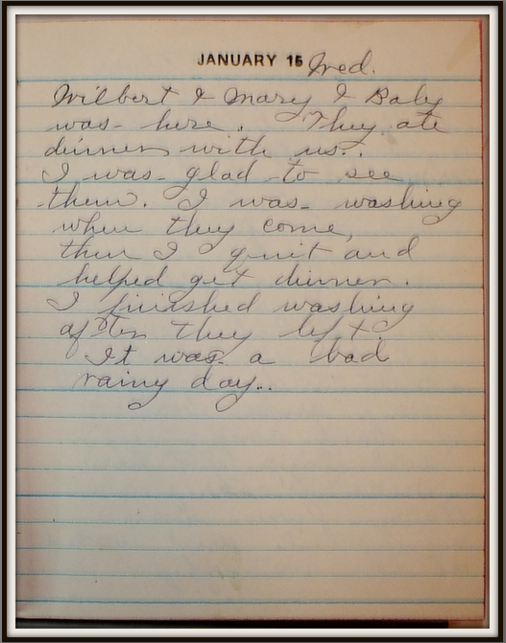 JANUARY 15 Wed.
Wilbert & Mary & Baby
was here. They ate
dinner with us..
I was glad to see
them. I was washing
when they come,
then I quit and
helped get dinner.
I finished washing
after they left.
It was a bad
rainy day..